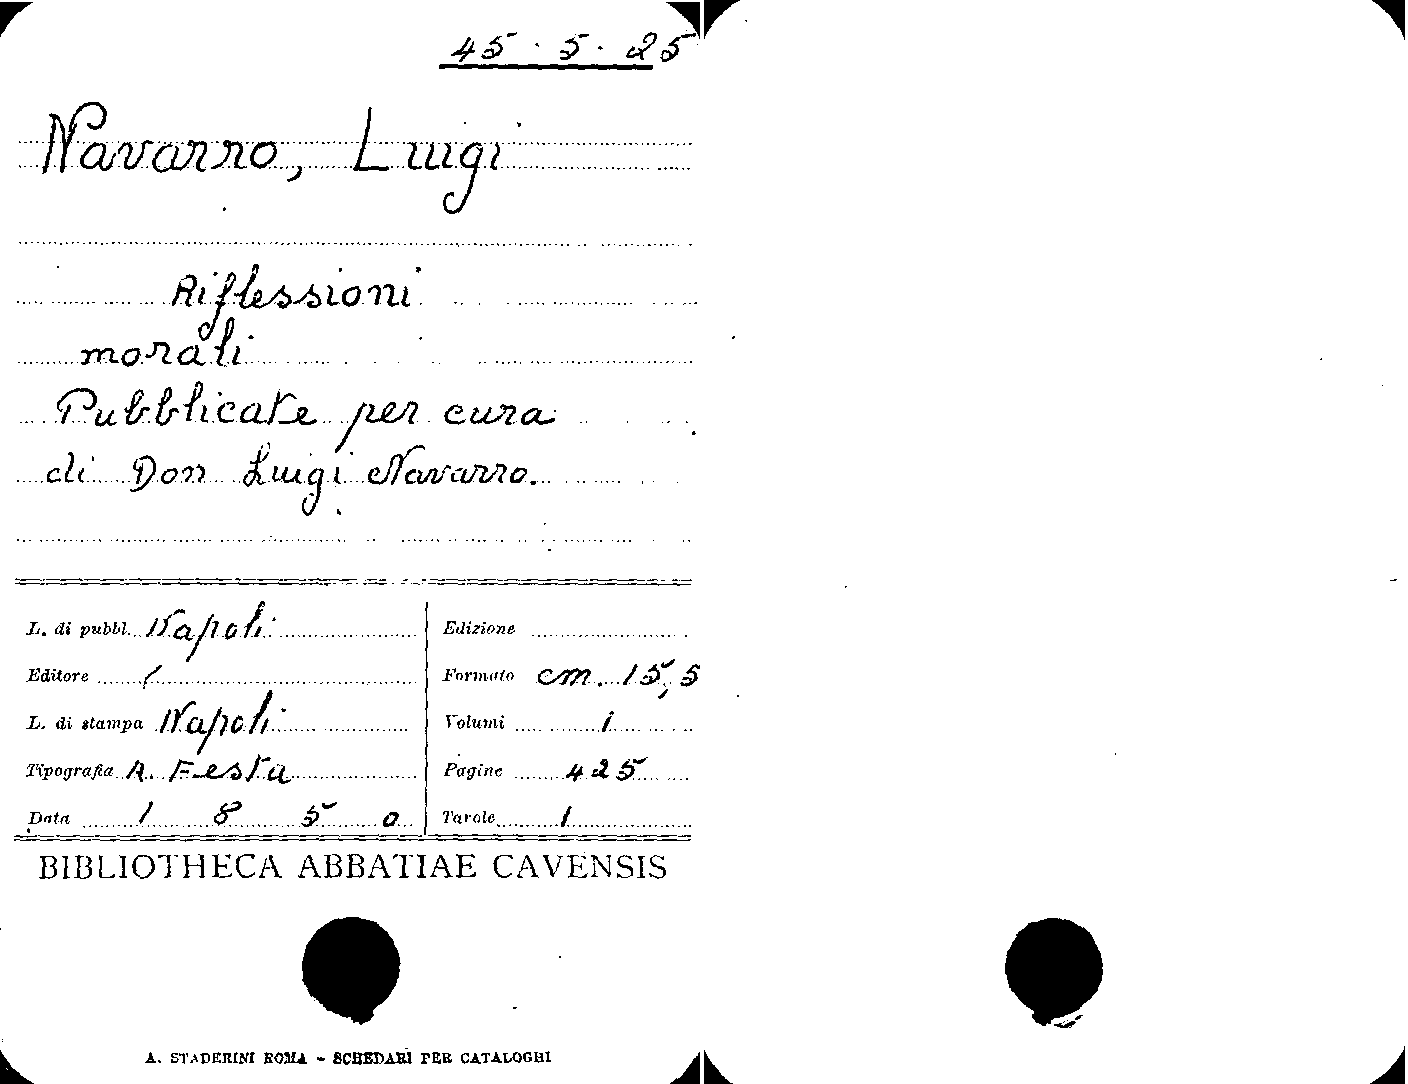 45 · 5 · 25
Navarro, Luigi
Riflessioni
morali
Pubblicate per cura
di Don Luigi Navarro.
L. di pubbl. Napoli
Editore /
L. di stampa Napoli
Tipografia A. Festa
Data 1 8 5 0
Edizione
Formato cm. 15,5
Volumi 1
Pagine 425
Tavole 1
BIBLIOTHECA ABBATIAE CAVENSIS
A. STADERINI ROMA - SCHEDARI PER CATALOGHI